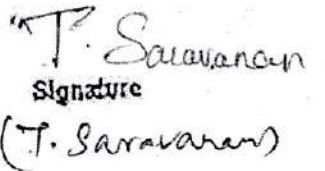 T. Saravanan
Signature
(T. Saravanan)